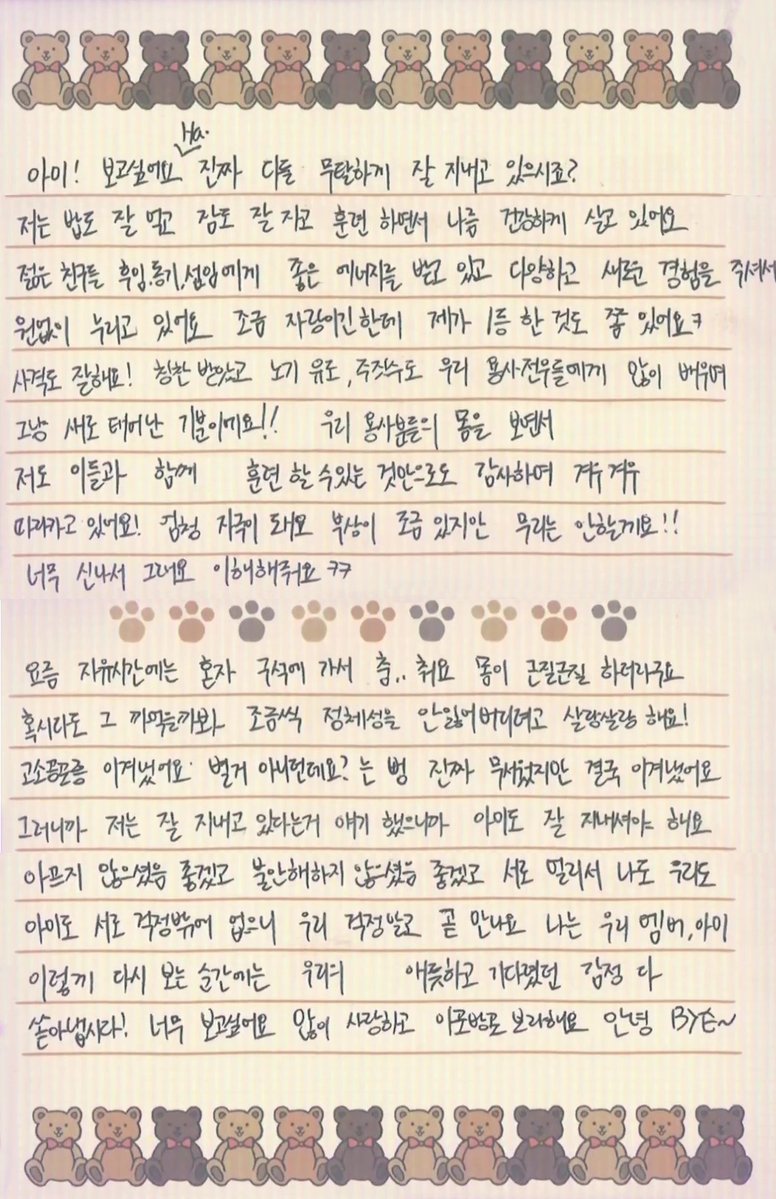 Ha.
아미! 보고싶어요 진짜 다들 무탈하게 잘 지내고 있으시죠?
저는 밥도 잘 먹고 잠도 잘 자고 훈련 하면서 나름 건강하게 살고 있어요
젊은 친구들 후임, 동기, 선임에게 좋은 에너지를 받고 있고 다양하고 새로운 경험을 주셔서
원없이 누리고 있어요 조금 자랑이긴한데 제가 1등 한 것도 쫌 있어요ㅋ
사격도 잘해요! 칭찬 받았고 노기 유도, 주짓수도 우리 용사전우들에게 많이 배우며
그냥 새로 태어난 기분이에요!! 우리 용사분들의 몸을 보면서
저도 이들과 함께 훈련 할 수 있는 것만으로도 감사하며 겨우겨우
따라가고 있어요! 엄청 자극이 돼요 부상이 조금 있지만 무리는 안할게요!!
너무 신나서 그래요 이해해줘요 ㅋㅋ
요즘 자유시간에는 혼자 구석에 가서 춤.. 춰요 몸이 근질근질 하더라구요
혹시라도 그 까먹을까봐 조금씩 정체성을 안잃어버리려고 살랑살랑 해요!
고소공포증 이겨냈어요 별거 아니던데요? 는 뻥 진짜 무서웠지만 결국 이겨냈어요
그러니까 저는 잘 지내고 있다는거 얘기 했으니까 아미도 잘 지내셔야 해요
아프지 않으셨음 좋겠고 불안해하지 않으셨음 좋겠고 서로 멀리서 나도 우리도
아미도 서로 걱정밖에 없으니 우리 걱정말고 곧 만나요 나는 우리 멤버, 아미
이렇게 다시 보는 순간에는 우리의 애틋하고 기다렸던 감정 다
쏟아냅시다! 너무 보고싶어요 많이 사랑하고 아포방포 보라해요 안녕 BYE~